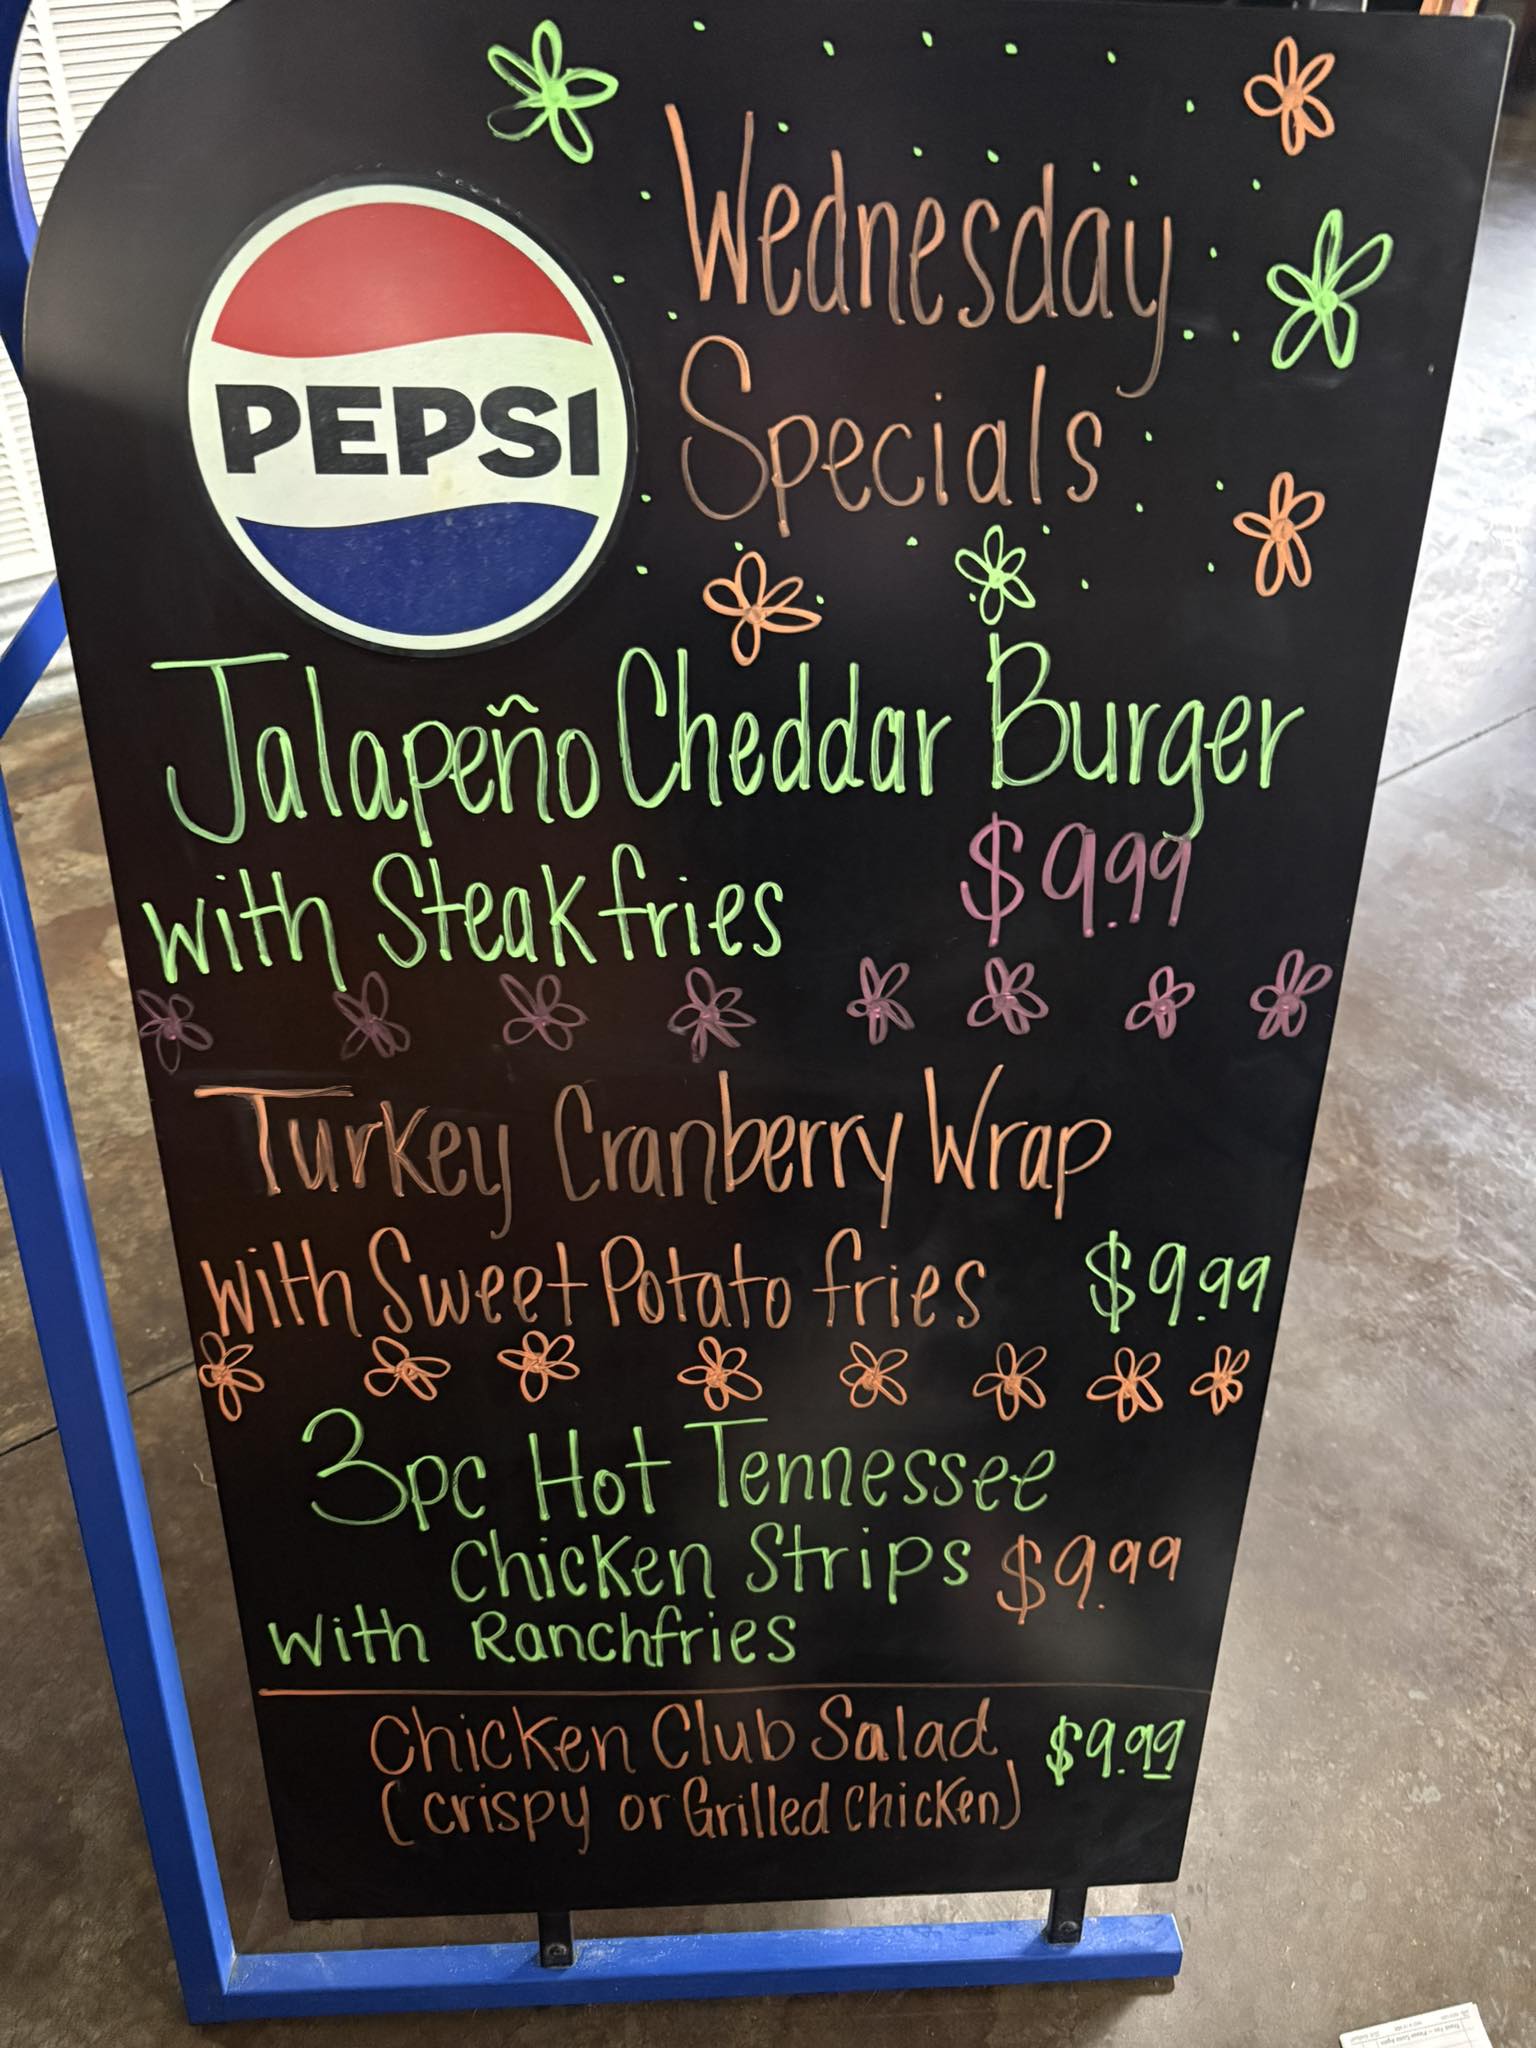 PEPSI
Wednesday
Specials
Jalapeño Cheddar Burger
with Steak fries $9.99
Turkey Cranberry Wrap
with Sweet Potato fries $9.99
3pc Hot Tennessee
Chicken Strips $9.99
with Ranch fries
Chicken Club Salad $9.99
(crispy or Grilled Chicken)